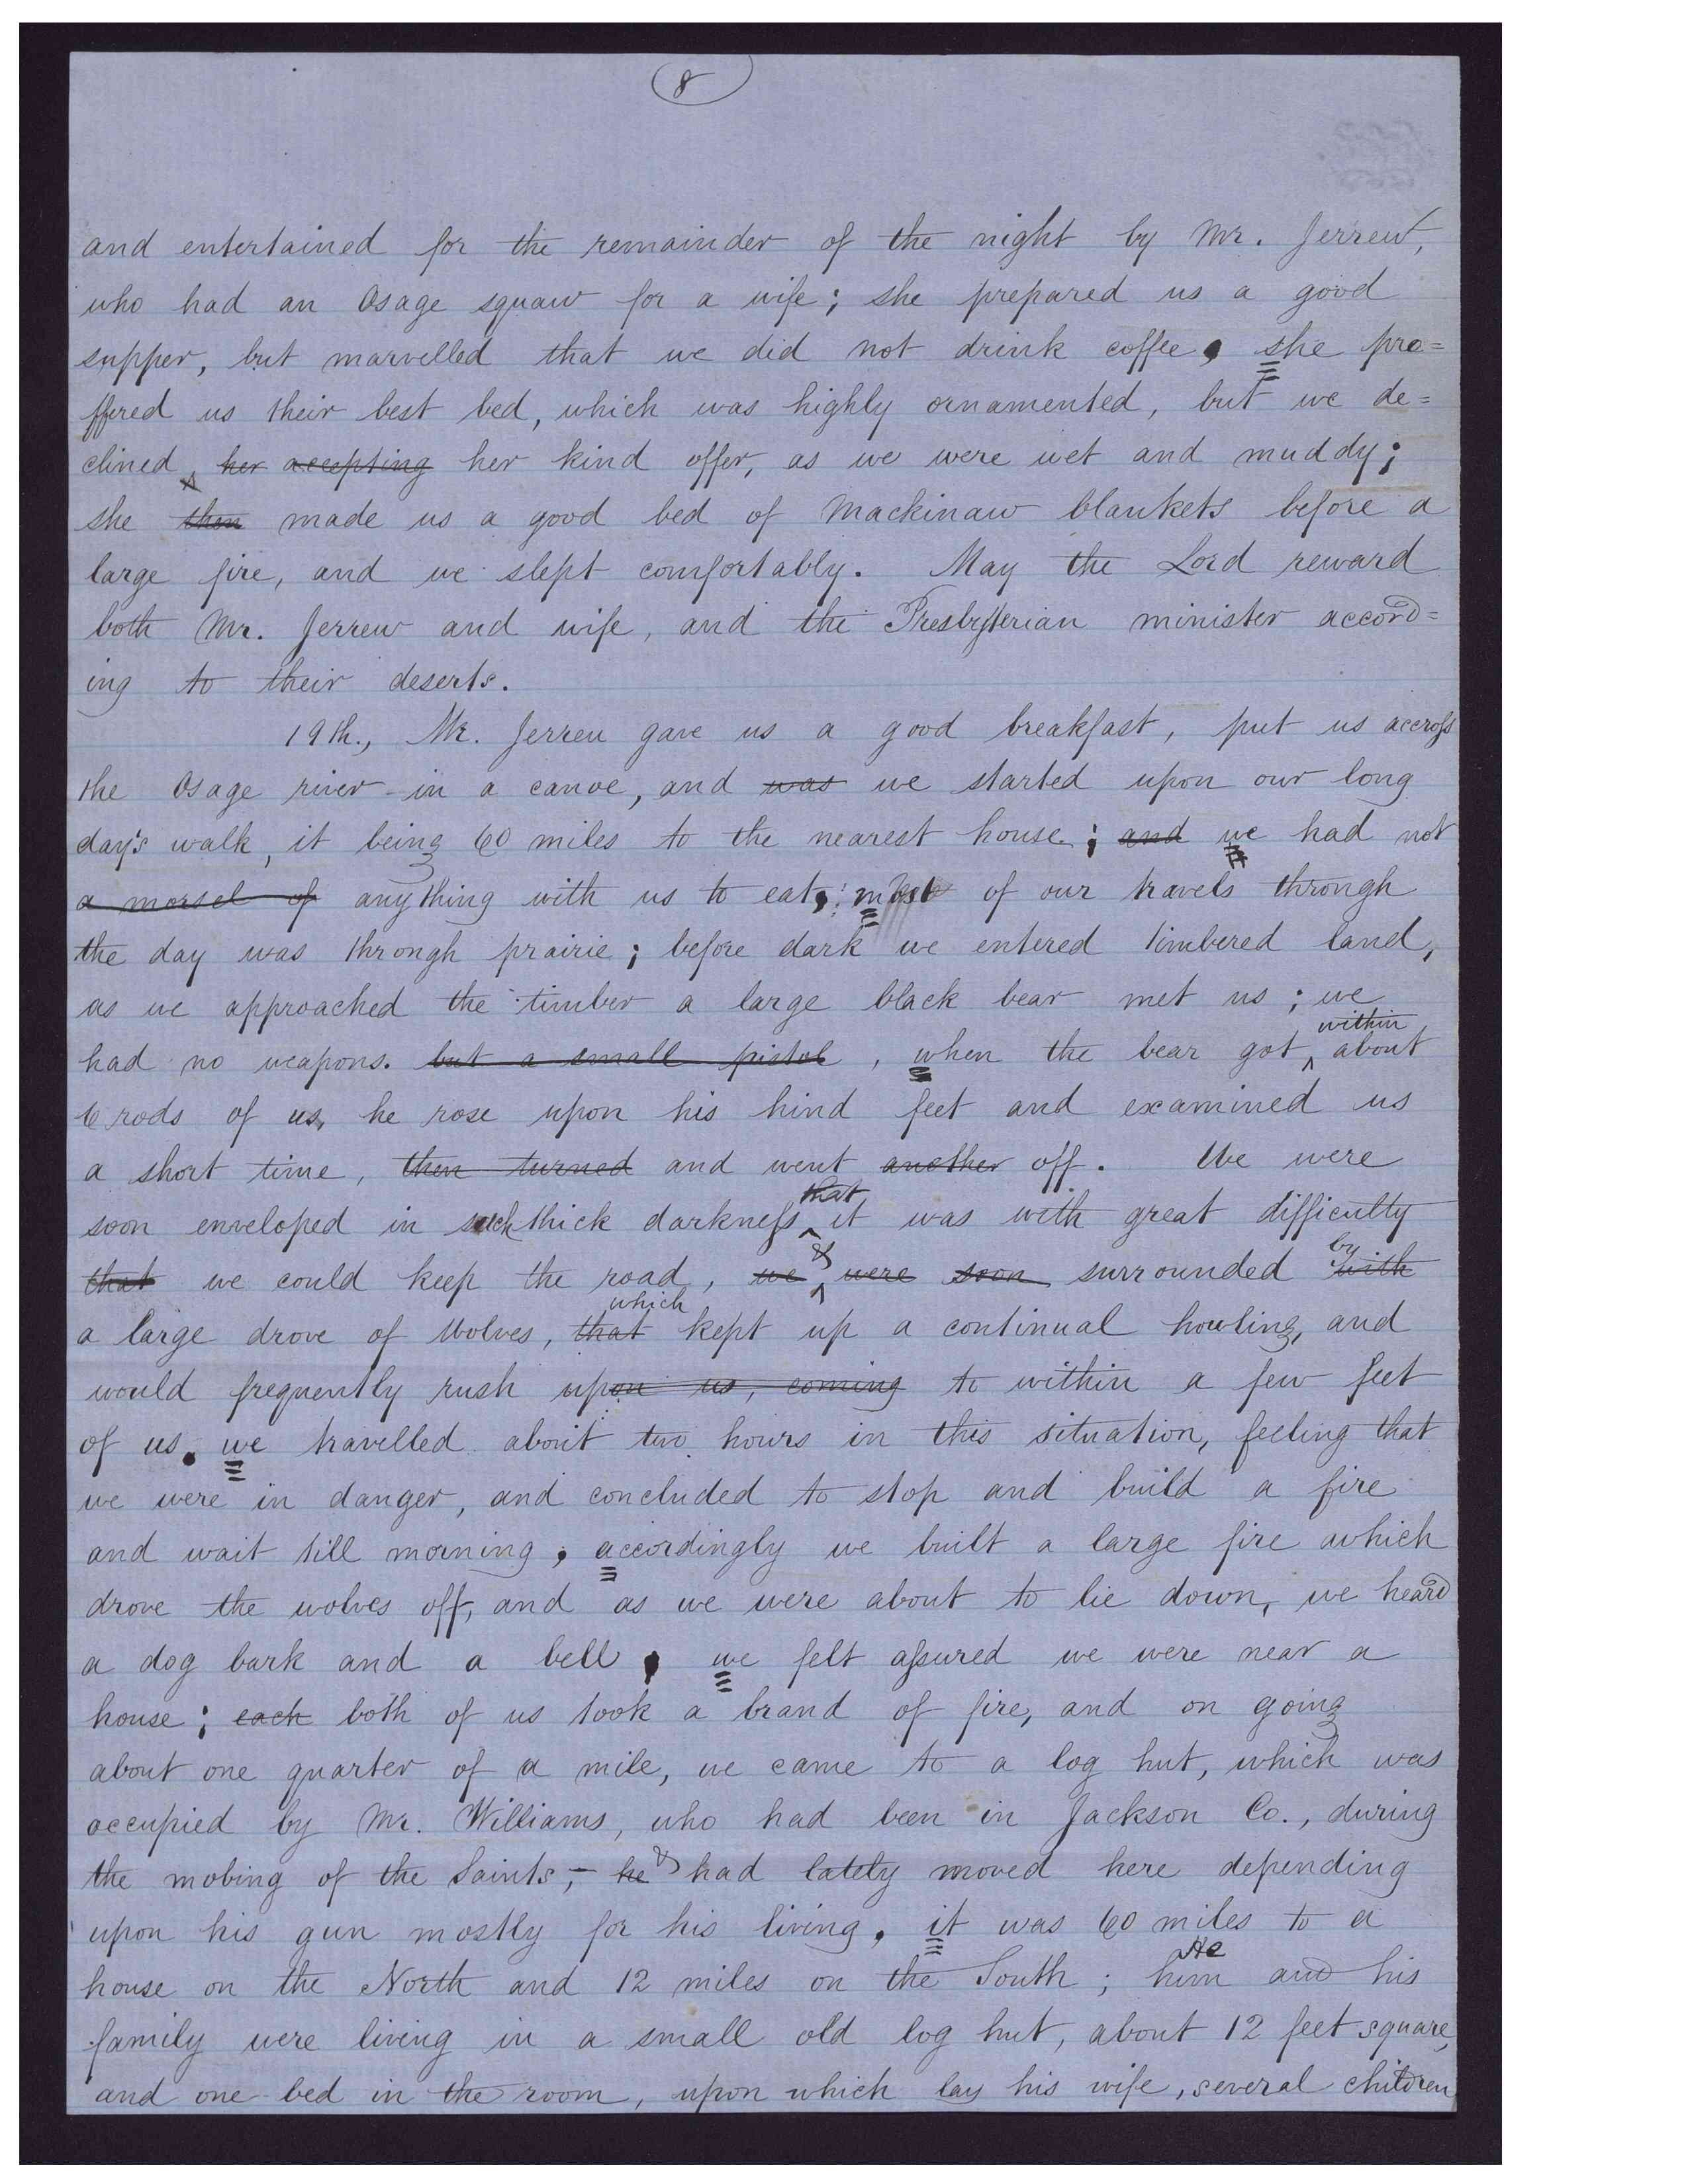 8
and entertained for the remainder of the night by Mr. Jerrew,
who had an Osage squaw for a wife; she prepared us a good
supper, but marvelled that we did not drink coffee, she pro=
ffered us their best bed, which was highly ornamented, but we de=
clined, her accepting her kind offer, as we were wet and muddy;
she then made us a good bed of Mackinaw blankets before a
large fire, and we slept comfortably. May the Lord reward
both Mr. Jerrew and wife, and the Presbyterian minister accord=
ing to their deserts.
19th., Mr. Jerreu gave us a good breakfast, put us accross
the Osage river in a canoe, and was we started upon our long
day's walk, it being 60 miles to the nearest house; and we had not
a morsel of anything with us to eat, most of our travels through
the day was through prairie; before dark we entered timbered land,
as we approached the timber a large black bear met us; we
within
had no weapons. but a small pistol, when the bear got about
6 rods of us, he rose upon his hind feet and examined us
a short time, then turned and went another off. We were
that
soon enveloped in such thick darkness it was with great difficulty
& by
that we could keep the road, we were soon surrounded with
which
a large drove of Wolves, that kept up a continual howling, and
would frequently rush upon us, coming to within a few feet
of us. we travelled about two hours in this situation, feeling that
we were in danger, and concluded to stop and build a fire
and wait till morning, accordingly we built a large fire which
drove the wolves off, and as we were about to lie down, we heard
a dog bark and a bell, we felt assured we were near a
house; each both of us took a brand of fire, and on going
about one quarter of a mile, we came to a log hut, which was
occupied by Mr. Williams, who had been in Jackson Co., during
the mobing of the Saints,- he & had lately moved here depending
upon his gun mostly for his living, it was 60 miles to a
He
house on the North and 12 miles on the South; him and his
family were living in a small old log hut, about 12 feet square,
and one bed in the room, upon which lay his wife, several children